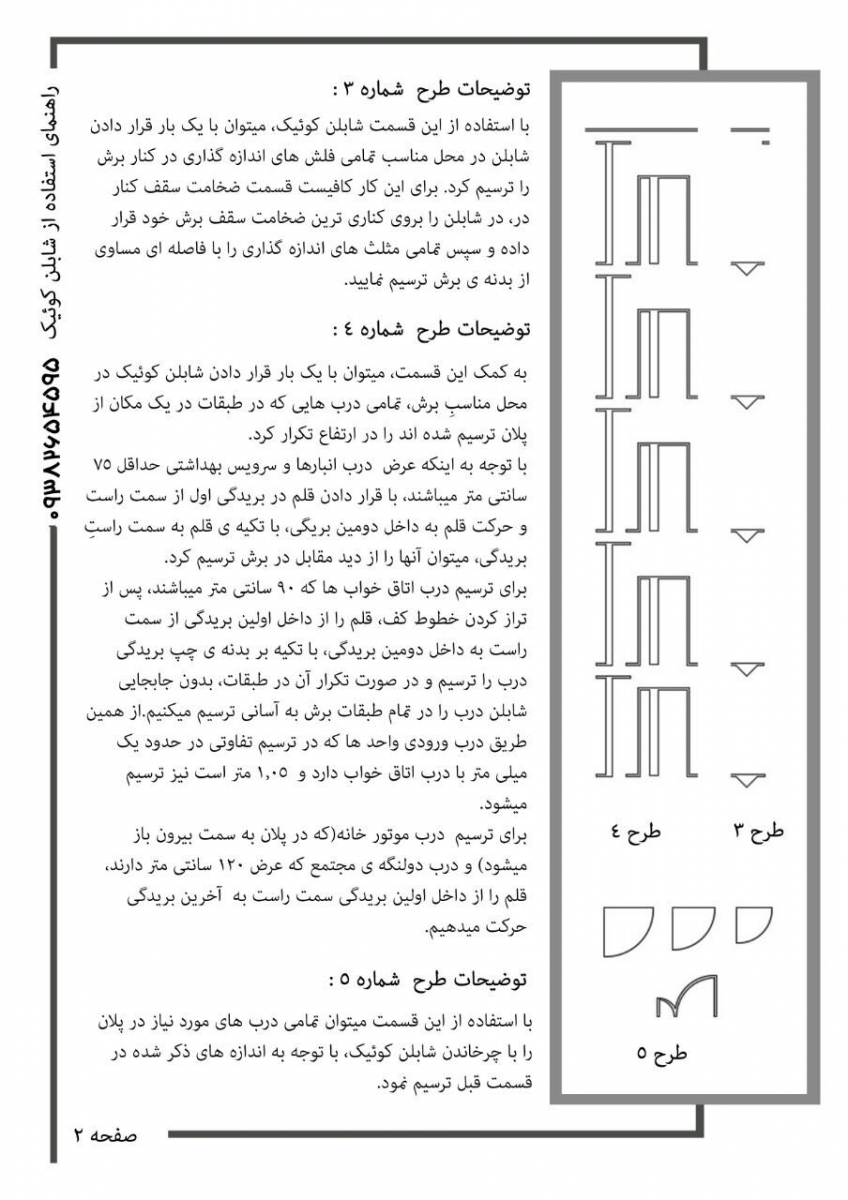 توضیحات طرح شماره ۳ :
با استفاده از این قسمت شابلن کوئیک، میتوان با یک بار قرار دادن
شابلن در محل مناسب تمامی فلش های اندازه گذاری در کنار برش
را ترسیم کرد. برای این کار کافیست قسمت ضخامت سقف کنار
در، در شابلن را بروی کناری ترین ضخامت سقف برش خود قرار
داده و سپس تمامی مثلث های اندازه گذاری را با فاصله ای مساوی
از بدنه ی برش ترسیم نمایید.
توضیحات طرح شماره ٤ :
به کمک این قسمت، میتوان با یک بار قرار دادن شابلن کوئیک در
محل مناسبِ برش، تمامی درب هایی که در طبقات در یک مکان از
پلان ترسیم شده اند را در ارتفاع تکرار کرد.
با توجه به اینکه عرض درب انبارها و سرویس بهداشتی حداقل ۷۵
سانتی متر میباشند، با قرار دادن قلم در بریدگی اول از سمت راست
و حرکت قلم به داخل دومین بریگی، با تکیه ی قلم به سمت راستِ
بریدگی، میتوان آنها را از دید مقابل در برش ترسیم کرد.
برای ترسیم درب اتاق خواب ها که ۹۰ سانتی متر میباشند، پس از
تراز کردن خطوط کف، قلم را از داخل اولین بریدگی از سمت
راست به داخل دومین بریدگی، با تکیه بر بدنه ی چپ بریدگی
درب را ترسیم و در صورت تکرار آن در طبقات، بدون جابجایی
شابلن درب را در تمام طبقات برش به آسانی ترسیم میکنیم.از همین
طریق درب ورودی واحد ها که در ترسیم تفاوتی در حدود یک
میلی متر با درب اتاق خواب دارد و ۱,۰۵ متر است نیز ترسیم
میشود.
برای ترسیم درب موتور خانه(که در پلان به سمت بیرون باز
میشود) و درب دولنگه ی مجتمع که عرض ۱۲۰ سانتی متر دارند،
قلم را از داخل اولین بریدگی سمت راست به آخرین بریدگی
حرکت میدهیم.
توضیحات طرح شماره ۵ :
با استفاده از این قسمت میتوان تمامی درب های مورد نیاز در پلان
را با چرخاندن شابلن کوئیک، با توجه به اندازه های ذکر شده در
قسمت قبل ترسیم نمود.
طرح ۳
طرح ٤
طرح ۵
راهنمای استفاده از شابلن کوئیک ۰۹۳۸۲۶۵۴۵۹۵
صفحه ۲